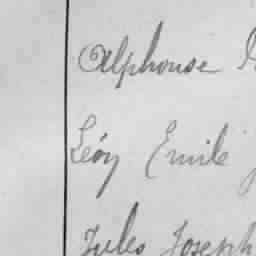 Alphonse
Léon Emile
Jules Joseph